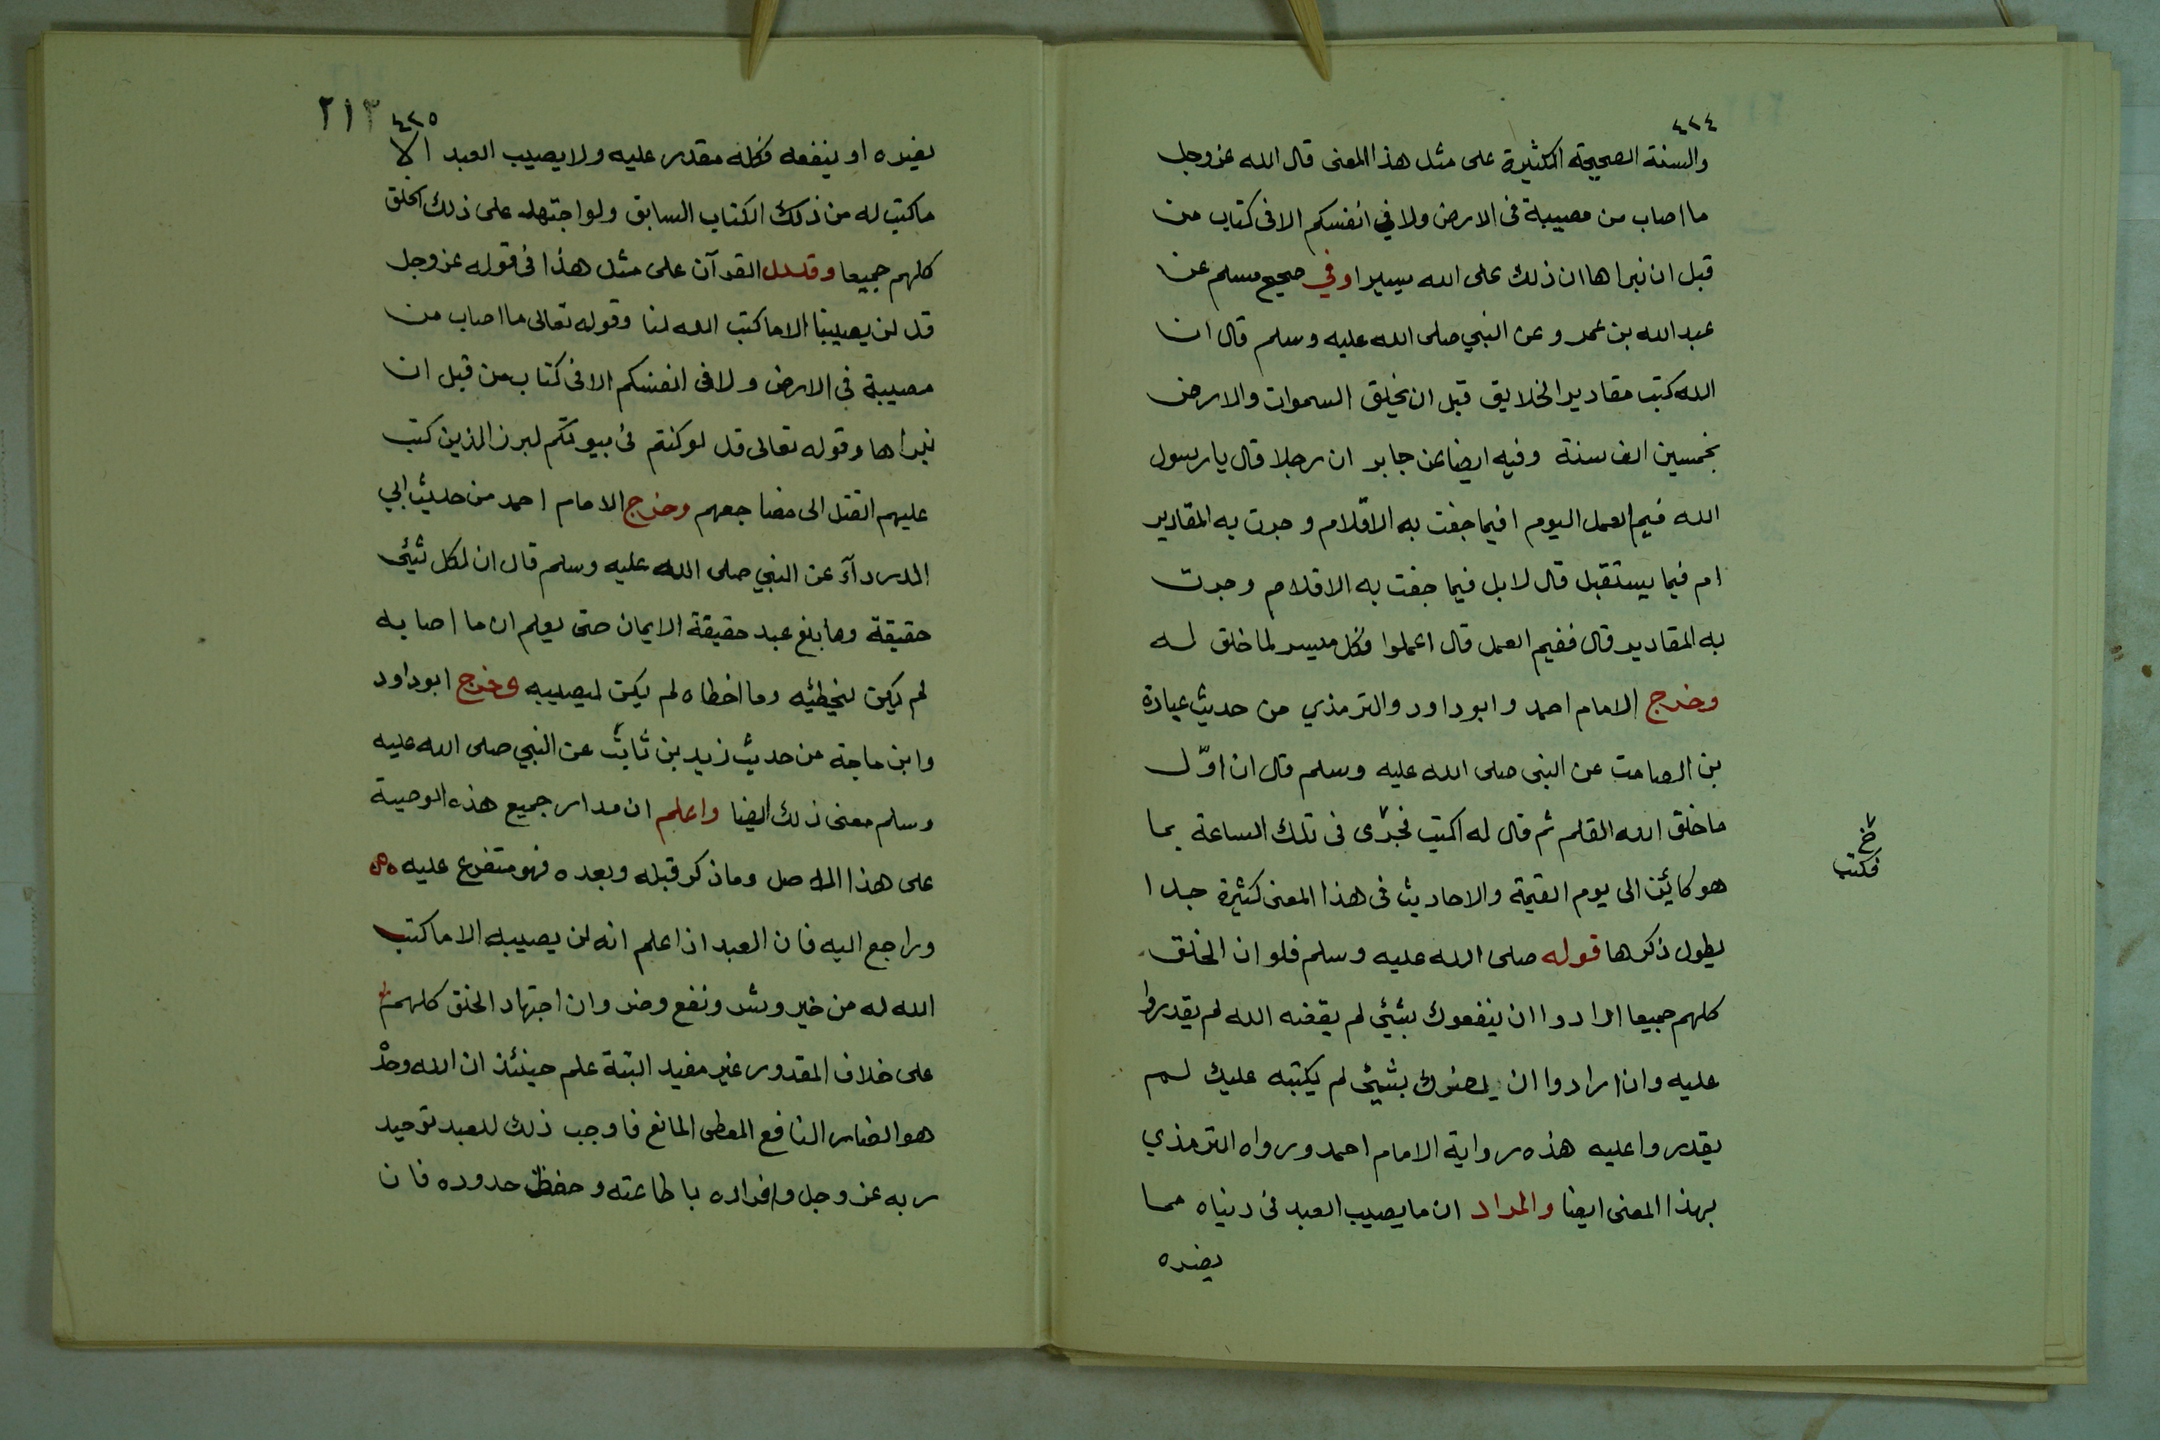 ٤٢٤
والسنة الصحيحة الكثيرة على مثل هذا المعنى قال الله عز وجل
ما اصاب من مصيبة فى الارض ولا في انفسكم الا فى كتاب من
قبل ان نبراها ان ذلك على الله يسيرا وفي صحيح مسلم عن
عبد الله بن عمرو عن النبي صلى الله عليه وسلم قال ان
الله كتب مقادير الخلايق قبل ان يخلق السموات والارض
بخمسين الف سنة وفيه ايضا عن جابر ان رجلا قال يا رسول
الله فيم العمل اليوم افيما جفت به الاقلام وجرت به المقادير
ام فيما يستقبل قال لا بل فيما جفت به الاقلام وجرت
به المقادير قال ففيم العمل قال اعملوا فكل ميسر لما خلق له
وخرج الامام احمد وابو داود والترمذي من حديث عبادة
بن الصامت عن النبى صلى الله عليه وسلم قال ان اوّل
ما خلق الله القلم ثم قال له اكتب فجرى فى تلك الساعة بما
خ
فكتب
هو كائن الى يوم القيمة والاحاديث فى هذا المعنى كثيرة جدا
يطول ذكرها قوله صلى الله عليه وسلم فلو ان الخلق
كلهم جميعا ارادوا ان ينفعوك بشيئ لم يقضه الله لم يقدروا
عليه وان ارادوا ان يضروك بشيئ لم يكتبه عليك لم
يقدروا عليه هذه رواية الامام احمد ورواه الترمذي
بهذا المعنى ايضا والمراد ان ما يصيب العبد فى دنياه مما
يضره
٤٢٥
٢١٣
يضره او ينفعه فكله مقدر عليه ولا يصيب العبد الا
ما كتب له من ذلك الكتاب السابق ولو اجتهد على ذلك الخلق
كلهم جميعا وقد دل القرآن على مثل هذا فى قوله عز وجل
قل لن يصيبنا الا ما كتب الله لنا وقوله تعالى ما اصاب من
مصيبة في الارض ولا فى انفسكم الا فى كتاب من قبل ان
نبراها وقوله تعالى قل لو كنتم فى بيوتكم لبرز الذين كتب
عليهم القتل الى مضاجعهم وخرج الامام احمد من حديث ابي
الدرداء عن النبي صلى الله عليه وسلم قال ان لكل شيئ
حقيقة وما بلغ عبد حقيقة الايمان حتى يعلم ان ما اصابه
لم يكن ليخطئه وما اخطاه لم يكن ليصيبه وخرج ابو داود
وابن ماجة من حديث زيد بن ثابت عن النبي صلى الله عليه
وسلم معنى ذلك ايضا واعلم ان مدار جميع هذه الوصية
على هذا الاصل وما ذكر قبله وبعده فهو متفرع عليه
وراجع اليه فان العبد اذا علم انه لن يصيبه الا ما كتب
الله له من خير وشر ونفع وضر وان اجتهاد الخلق كلهم
على خلاف المقدور غير مفيد البتة علم حينئذ ان الله وحد
هو الضار النافع المعطى المانع فاوجب ذلك للعبد توحيد
ربه عز وجل وافراده با طاعته وحفظ حدوده فان